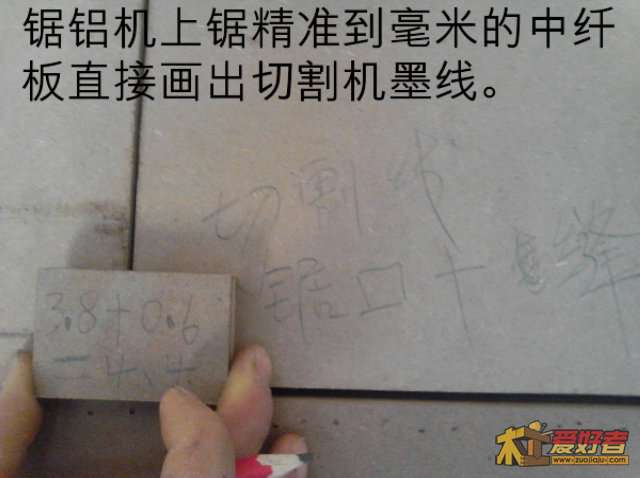 锯铝机上锯精准到毫米的中纤
板直接画出切割机墨线。
切割线
锯口十 缝
3.8+0.6
=4.4
木工爱好者
www.zuojiaju.com